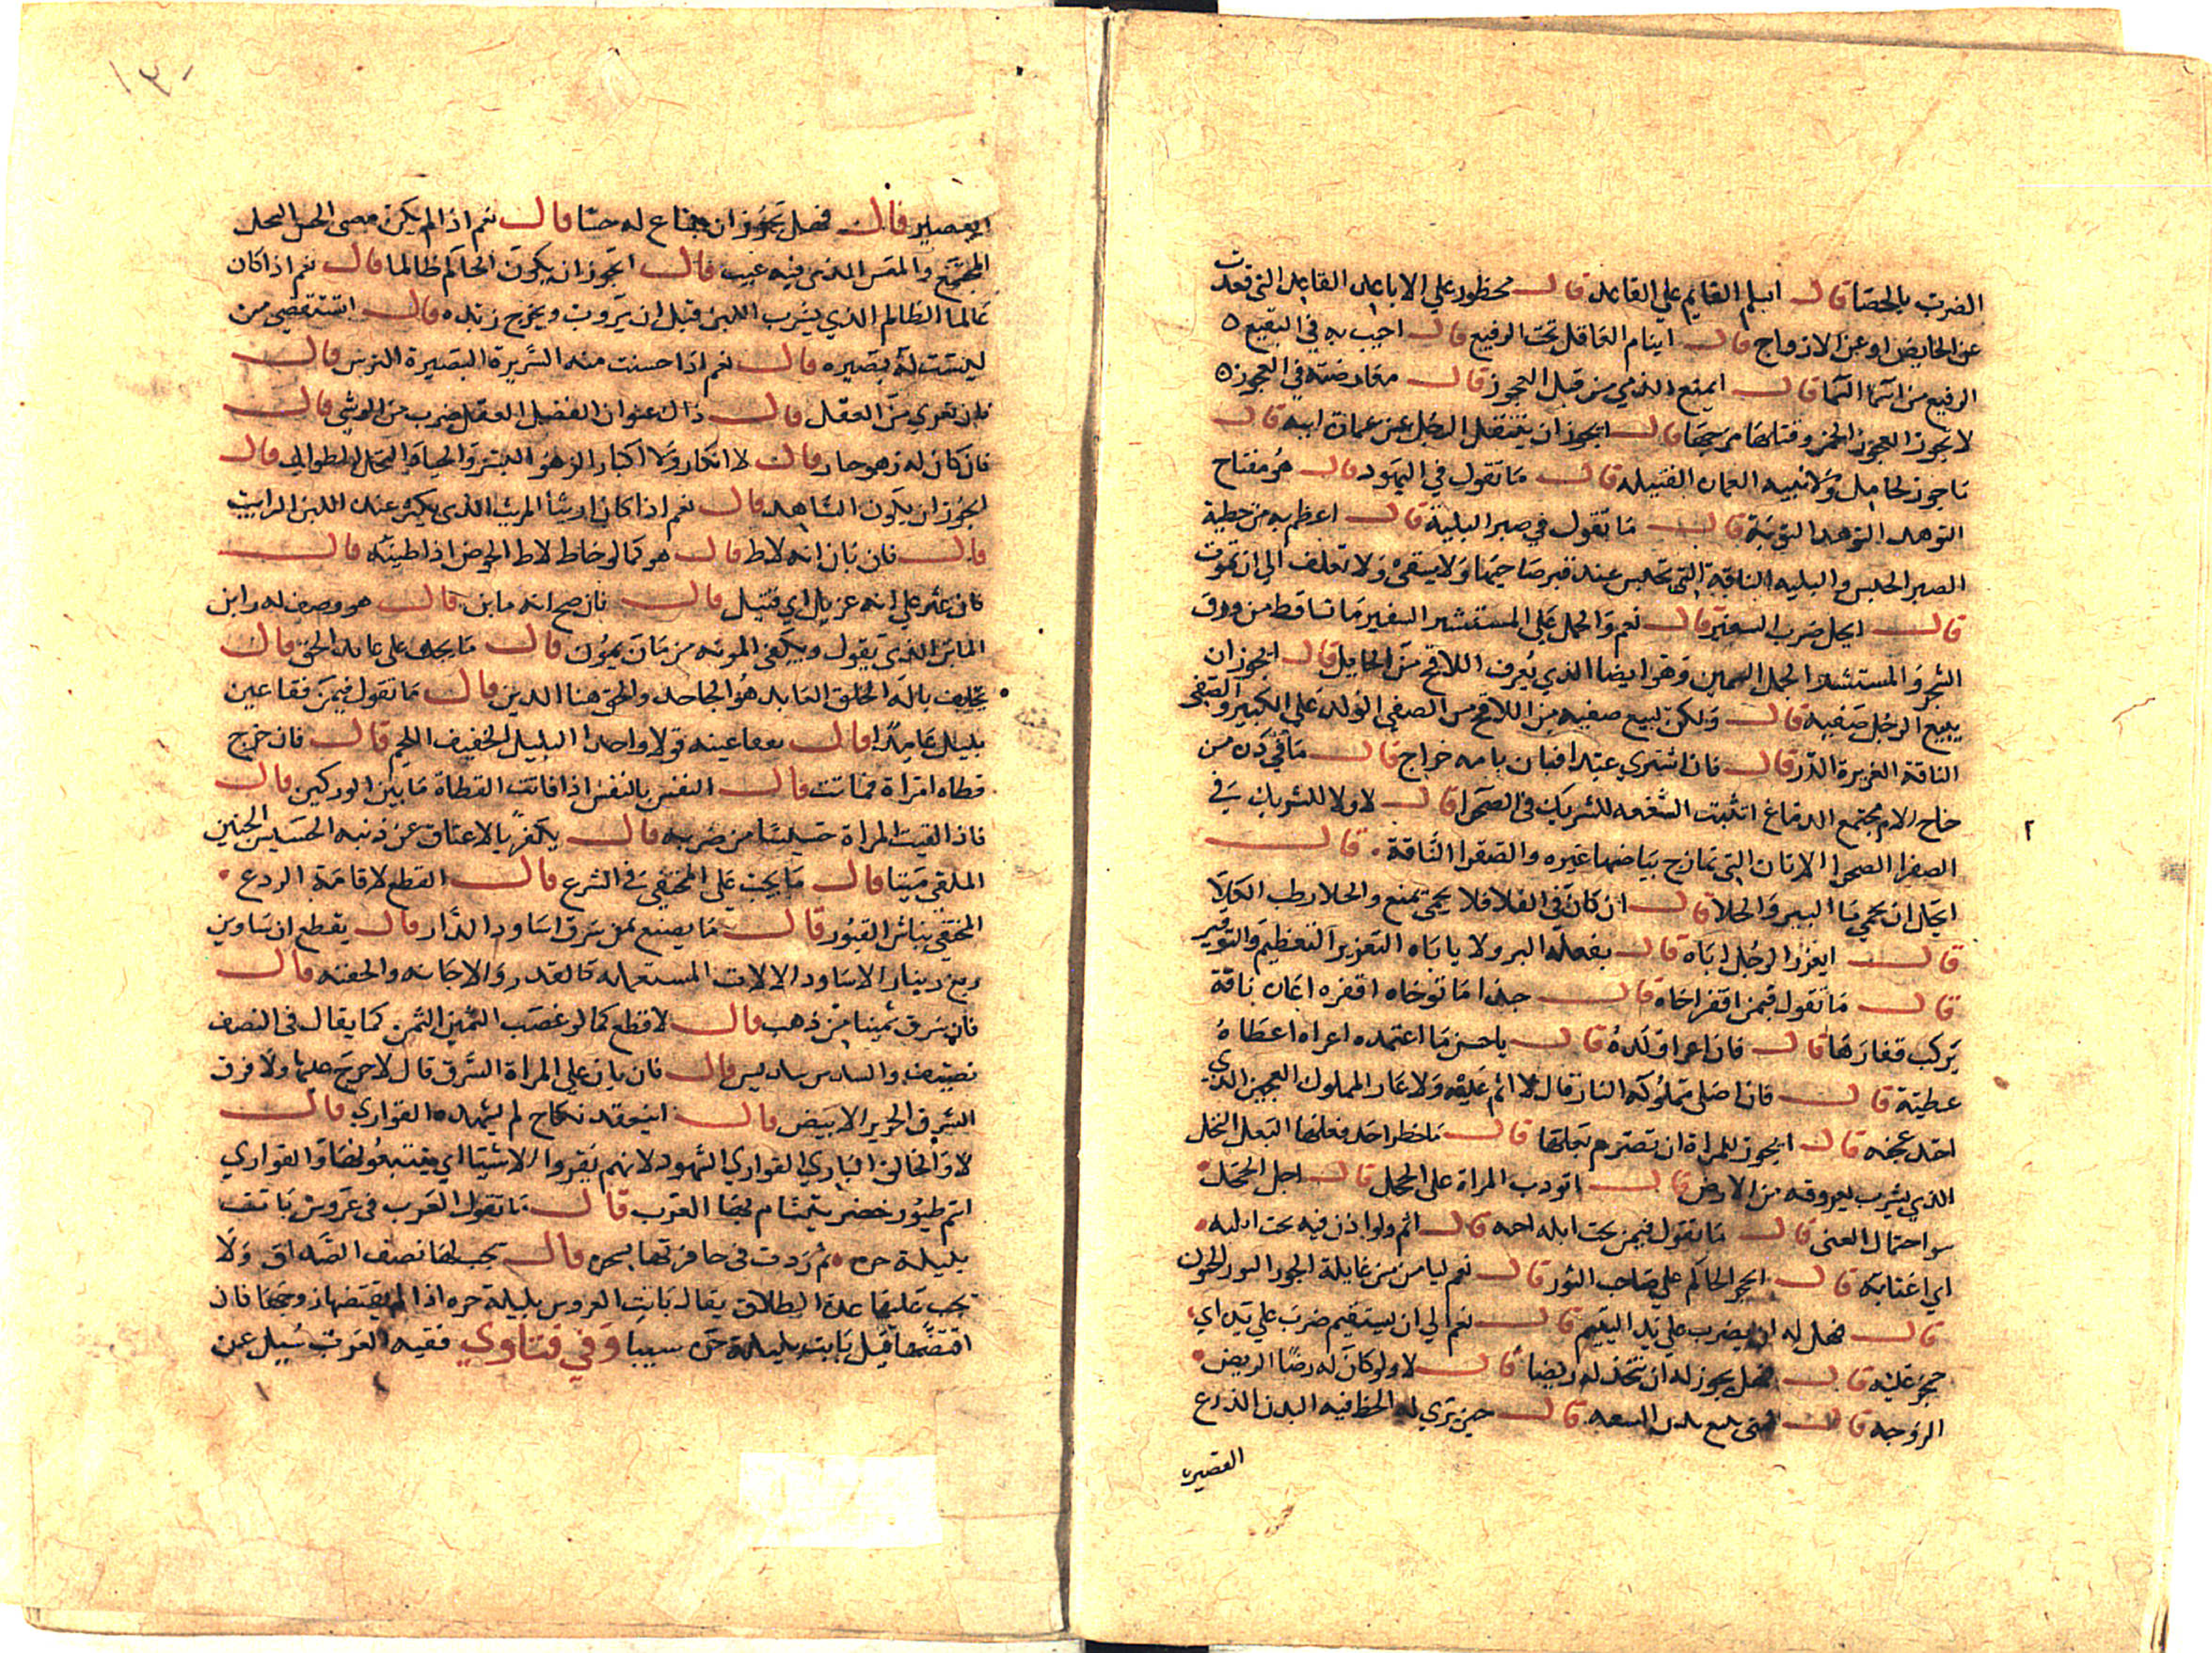 الضرب بالحصا قال ايسلم القايم علي القاعد قال محظور علي الاباعد القاعد التي قعدت
عن الحايض او عن الازواج قال اينام العاقل تحت الرقيع قال احبب به في البقيع ه
الرقيع من اسما السما قال ايمنع الذمي من قتل العجوز قال معارضته في العجوز ه
لا تجوز العجوز الخمر وقتلها مزجها قال ايجوز ان ينتقل الرجل عن عمارة ابيه قال
ما جوز لخامل ولا نبيه العمارة القبيله قال ما تقول في التهود قال هو مفتاح
التزهد التهود التوبة قال ما تقول في صبر البلية قال اعظم به من خطية
الصبر الحبس والبليه الناقة التي تحبس عند قبر صاحبها ولا تسقي ولا تعلف الي ان تموت
قال ايحل ضرب السفير قال نعم والحمل علي المستشير السفير ما تساقط من ورق
الشجر والمستشير الحمل السمين وهو ايضا الذي يعرف اللاقح من الحايل قال ايجوز ان
يبيع الرجل صيفيه قال ولكن ليبع صفيه الصيفي الولد علي الكبر والصفي
الناقة الغزيرة الدر قال فان اشتري عبدا فبان بامه جراح قال ما في رده من
جناح الام مجتمع الدماغ اتثبت الشفعه للشريك في الصحرا قال لا ولا للشريك في
الصفرا الصحرا الاتان التي تمازج بياضها غبره والصفرا الناقة • قال
ايحل ان يحمي ما البير والخلا قال ان كان في الفلا فلا يحمي يمنع والخلا رطب الكلا
قال ايعزر الرجل اباه قال يفعله البر ولا ياباه التعزير التعظيم والتوقير
قال ما تقول فيمن افقر اخاه قال حبذا ما توخاه افقره اعاره ناقة
يركب فقارها قال فان اعرا ولده قال يا حسن ما اعتمده اعراه اعطاه
عطية قال فان اصلي مملوكه النار قال لا اثم عليه ولا عار المملوك العجين الذي
اجيد عجنه قال ايجوز للمراة ان تصرم بعلها قال ما حظر احد فعلها البعل النخل
الذي يشرب بعروقه من الارض قال اتودب المراة علي الخجل قال اجل الخجل
سو احتمال الغني قال ما تقول فيمن نحت اثله اخيه قال اثم ولو اذن فيه نحت اثلته
اي اغتابه قال ايحجر الحاكم علي صاحب الثور قال نعم ليامن من غايلة الجور الثور الجنون
قال فهل له ان يضرب علي يد اليتيم قال نعم الي ان يستقيم ضرب علي يده اي
حجر عليه قال فهل يجوز له ان يتخذ له ربضا قال لا ولو كان له رضا الربض
الزوجه قال فمتي يبيع بدن السفيه قال حين يري له الحظ فيه البدن الدرع
القصير
١٣٠
القصير قال فهل يجوز ان يبتاع له حشا قال نعم اذا لم يكن مغشي الحش النخل
المجتمع قال ايجوز ان يكون الحاكم ظالما قال نعم اذا كان
عالما الظالم الذي يشرب اللبن قبل ان يروب ويخرج زبده قال ايستقضي من
ليست له بصيره قال نعم اذا حسنت منه السريرة البصيرة الترس قال
فان تعري من العقل قال ذاك عنوان الفضل العقل ضرب من الوشي قال
فان كان له زهو جبار قال لا انكار ولا اكبار الزهو البسر والجبار النخل الطوال قال
ايجوز ان يكون الشاهد مريبا قال نعم اذا كان اريبا المريب الذي يكثر عنده اللبن الرايب
قال فان بان انه لاط قال هو كما لو خاط لاط الحوض اذا طينه قال
فان عثر علي انه غربل اي قتل قال فان صح انه ماين قال هو وصف له زاين
الماين الذي يعول ويكفي المونه من مان يمون قال ما يجب علي عابد الحق قال
يحلف باله الخلق العابد هو الجاحد والحق هنا الدين قال ما تقول فيمن فقا عين
بلبل عامدا قال تفقا عينه قولا واحدا البلبل الخفيف اللحم قال فان جرح
قطاه امراة فماتت قال النفس بالنفس اذا فاتت القطاة ما بين الوركين قال
فان القت المراة حشيشا من ضربه قال يكفر بالاعتاق عن ذنبه الحشيش الجنين
الملقي ميتا قال ما يجب علي المختفي في الشرع قال القطع لاقامة الردع •
المختفي نباش القبور قال ما يصنع بمن سرق اساود الدار قال يقطع ان ساوين
ربع دينار الاساود الالات المستعمله كالقدر والاجانه والجفنه قال
فان سرق ثمينا من ذهب قال لا قطع كما لو غصب الثمين الثمن كما يقال في النصف
نصيف والسدس سديس قال فان بان علي المراة السرق قال لا حرج عليها ولا فرق
السرق الحرير الابيض قال اينعقد نكاح لم يشهده القواري قال
لا والخالق الباري القواري الشهود لانهم يقروا الاشيا اي يتتبعونها والقواري
اسم طيور خضر يتشام بها العرب قال ما تقول العرب في عروس باتت
بليلة حره ثم ردت في حافرتها بسحره قال يجب لها نصف الصداق ولا
تجب عليها عدة الطلاق يقال باتت العروس بليلة حره اذا لم يقتضها زوجها فان
اقتضها قيل باتت بليلة شيبا وفي فتاوي فقيه العرب سيل عن